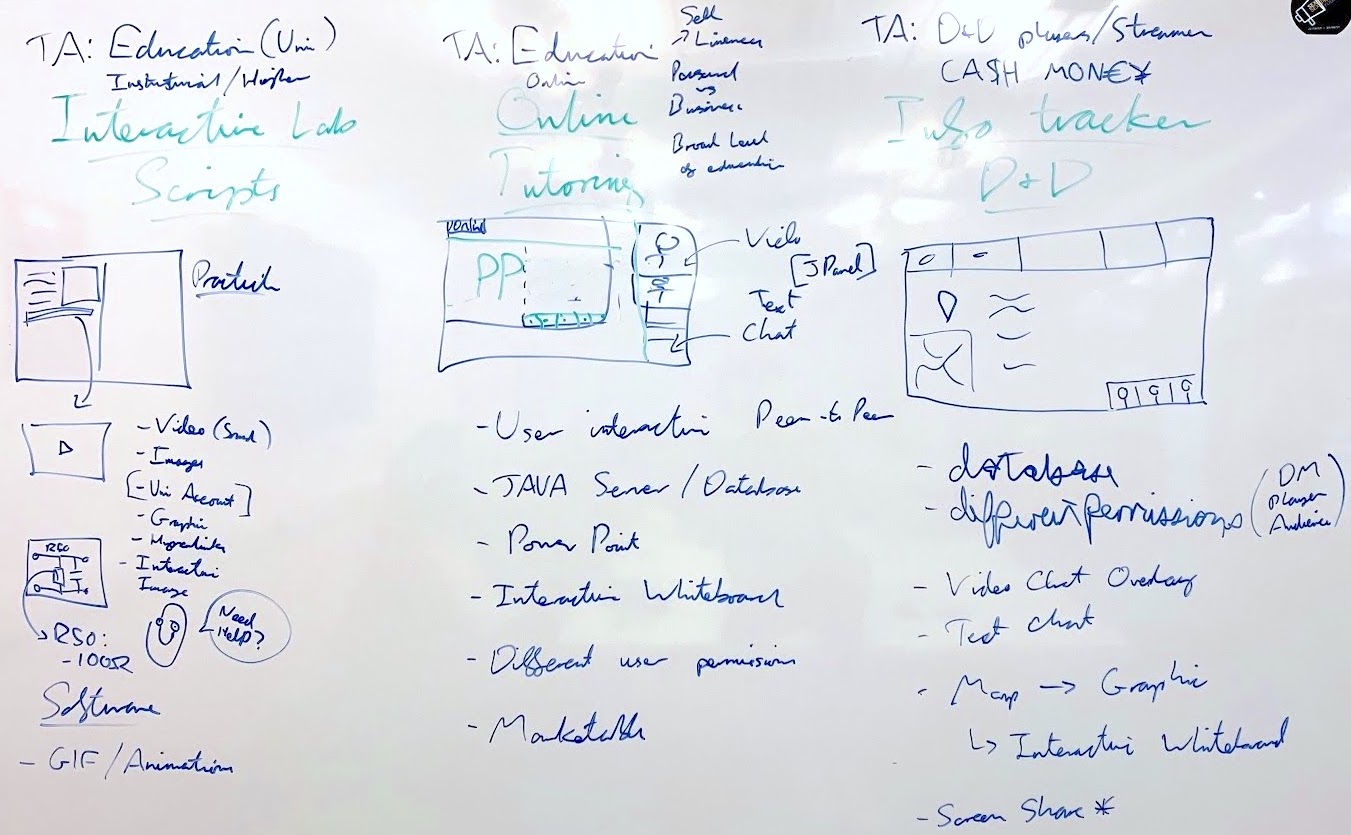 TA: Education (Uni)
Institutional/Higher
Interactive Lab
Scripts
Practical
- Video (Sound)
- Images
[- Uni Account]
- Graphic
- Hyperlinks
- Interactive
Image
R50
R50:
- 100Ω
Need
Help?
Software
- GIF/Animation
TA: Education
Online
Sell
↗ Licences
Personal
vs
Business
Broad Level
of education
Online
Tutoring
PP
Video
[JPanel]
Text
Chat
- User interactive Peer-to Peer
- JAVA Server / Database
- Power Point
- Interactive Whiteboard
- Different user permissions
- Marketable
TA: D&D players/Streamer
CA$H MON€¥
Info tracker
D&D
- database
- different permissions (DM
player
Audience)
- Video Chat Overlay
- Text chat
- Map → Graphic
↳ Interactive Whiteboard
- Screen Share *